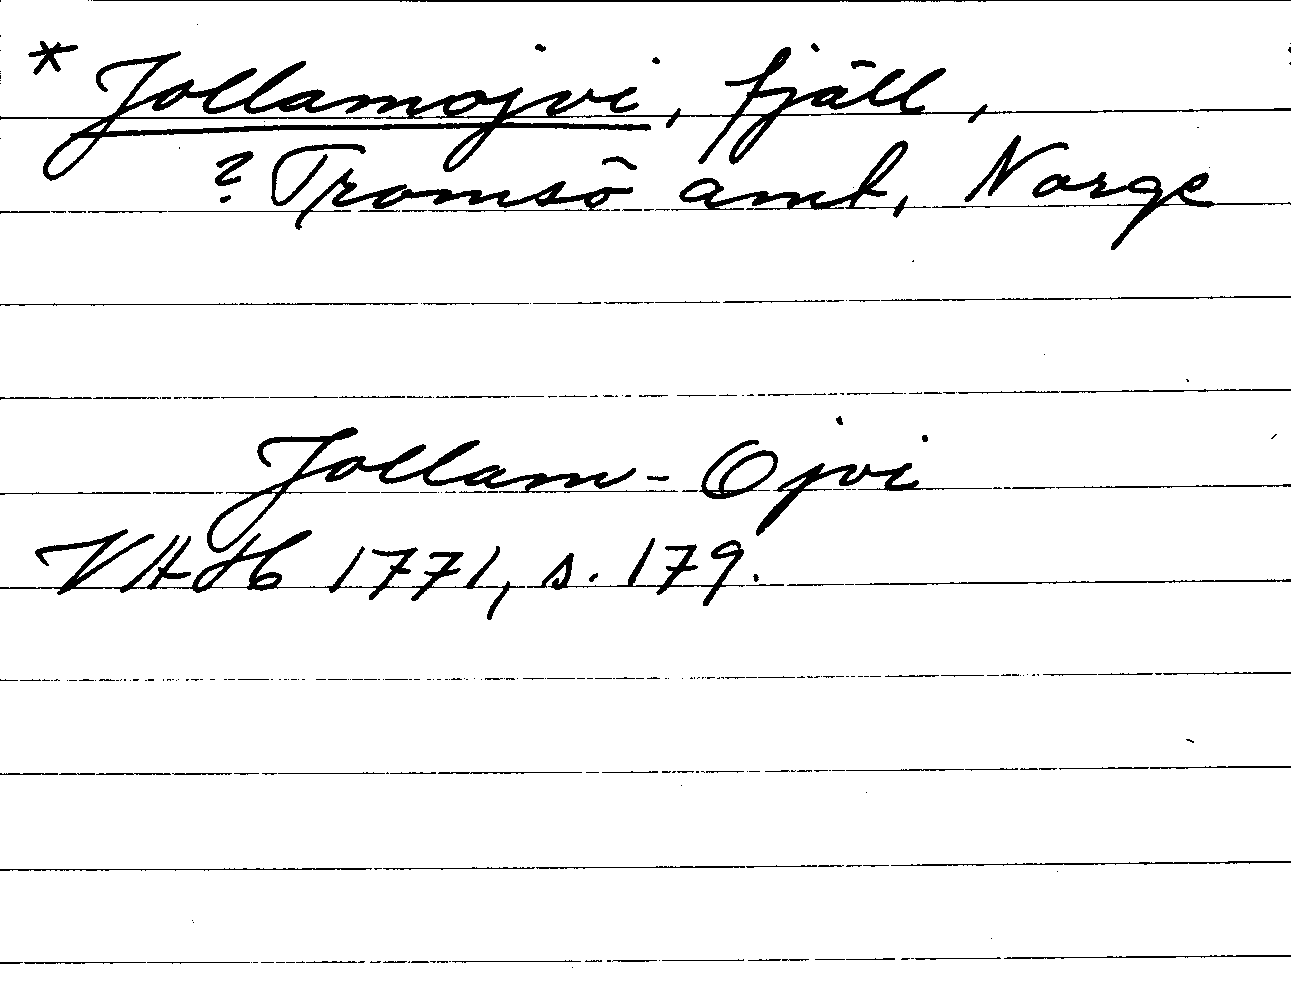 * Jollamojvi, fjäll,
? Tromsö amt, Norge
Jollam-Ojvi
VHAH 1771, s. 179.